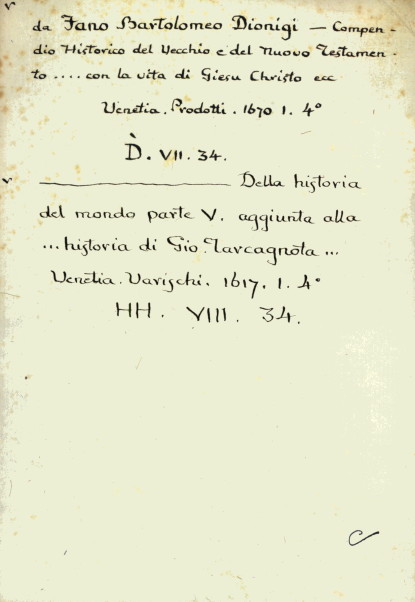 v
da Fano Bartolomeo Dionigi — Compen-
dio Historico del Vecchio e del Nuovo Testamen-
to .... con la vita di Giesu Christo ecc
Venetia. Prodotti. 1670 1. 4°
D̀. VII. 34.
v ———— Della historia
del mondo parte V. aggiunta alla
... historia di Gio. Tarcagnota ...
Venetia. Varischi. 1617. 1. 4°
HH. VIII. 34.